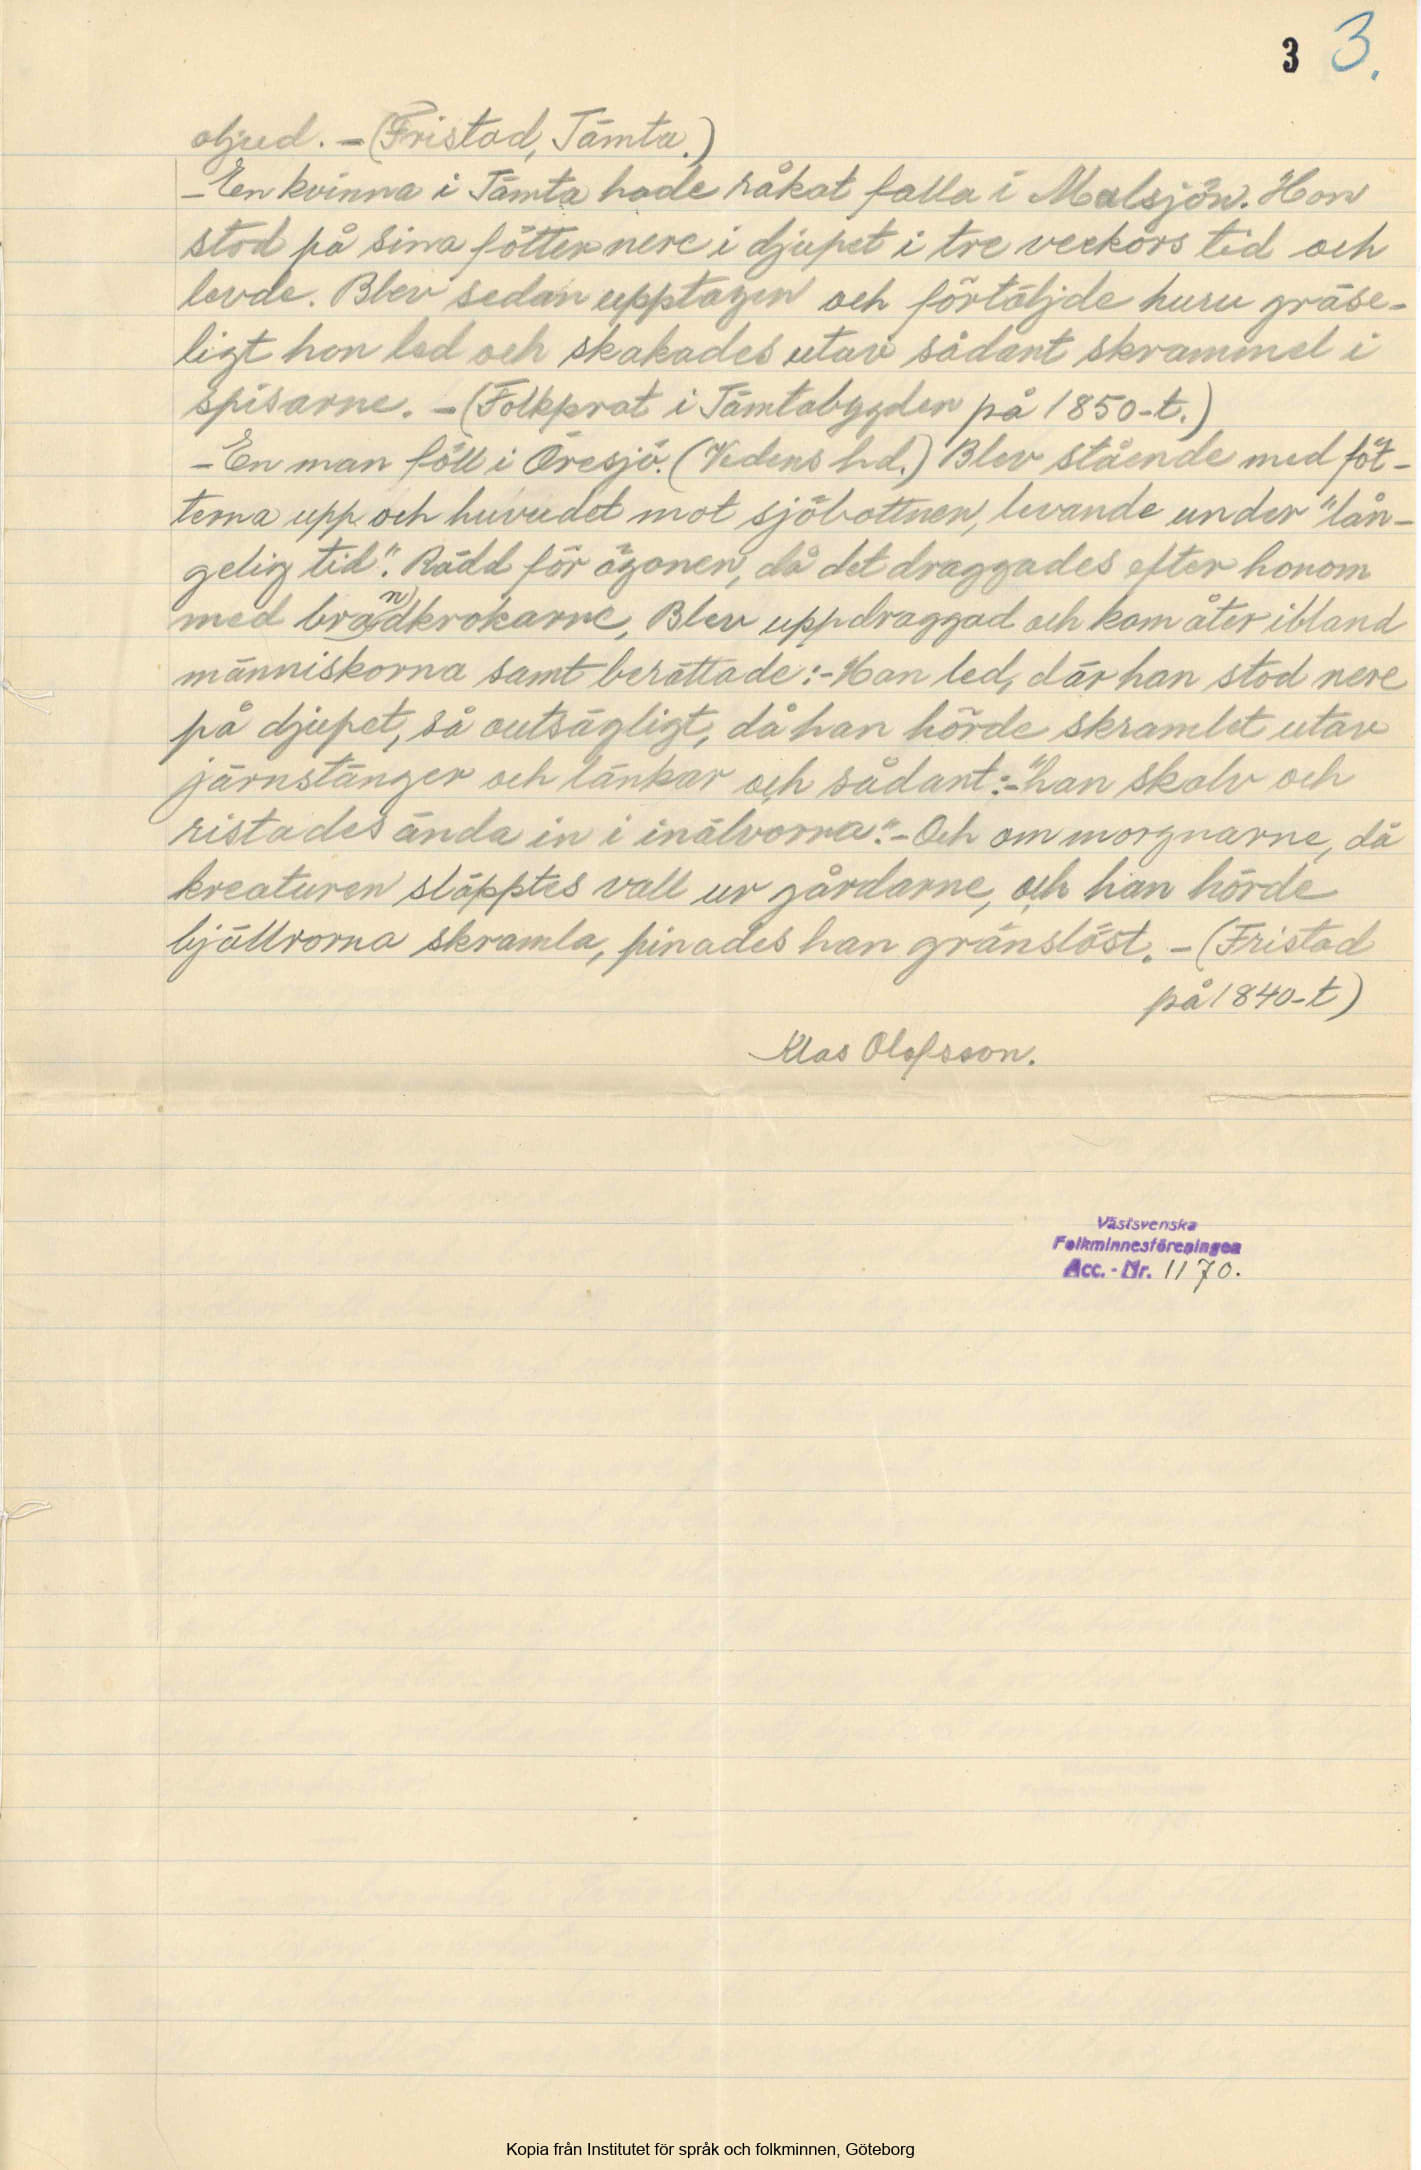 3 3.
oljud. - (Fristad, Tämta.)
- En kvinna i Tämta hade råkat falla i Malsjön. Hon
stod på sina fötter nere i djupet i tre veckors tid och
levde. Blev sedan upptagen och förtäljde huru gräse-
ligt hon led och skakades utav sådant skrammel i
spisarne. - (Folkprat i Tämtabygden på 1850-t.)
- En man föll i Öresjö. (Vedens hd.) Blev stående med föt-
terna upp och huvudet mot sjöbottnen, levande under "lån-
gelig tid". Rädd för ögonen, då det draggades efter honom
med brandkrokarne. Blev uppdraggad och kom åter ibland
människorna samt berättade:- Han led, där han stod nere
på djupet, så outsägligt, då han hörde skramlet utav
järnstänger och länkar och sådant:- "han skalv och
ristades ända in i inälvorna". - Och om morgnarne, då
kreaturen släpptes vall ur gårdarne, och han hörde
bjällrorna skramla, pinades han gränslöst. - (Fristad
på 1840-t)
Klas Olofsson.
Västsvenska
Folkminnesföreningen
Acc. - Nr. 1170.
Kopia från Institutet för språk och folkminnen, Göteborg